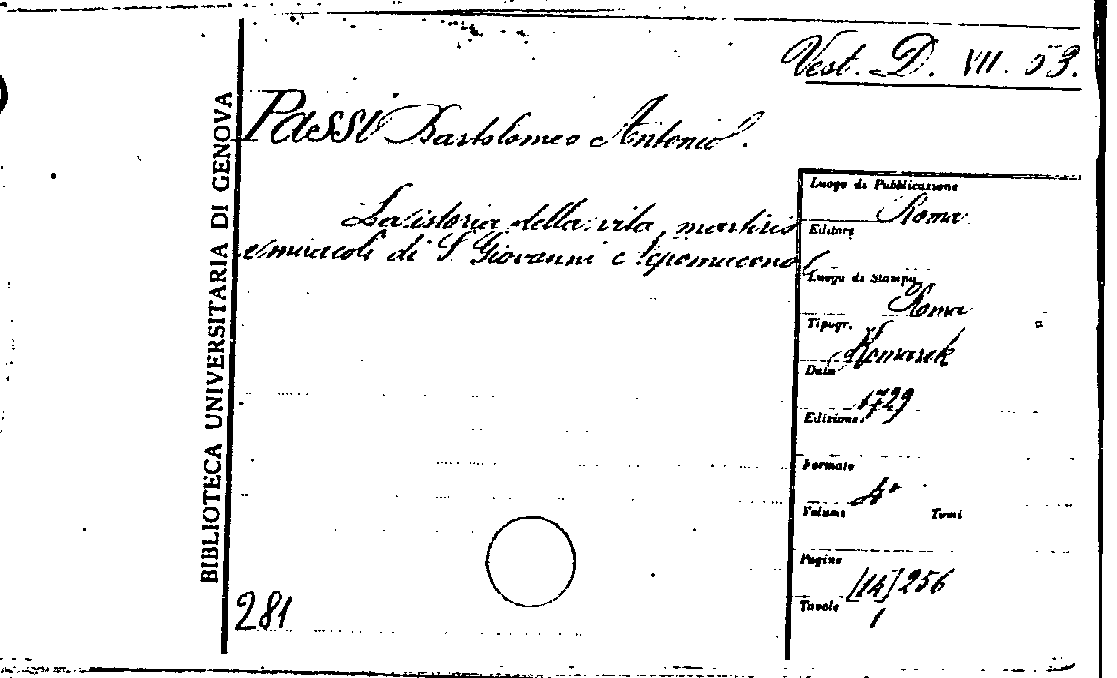 Vest. D. VII. 53.
BIBLIOTECA UNIVERSITARIA DI GENOVA
Passi Bartolomeo Antonio.
La istoria della vita, martirio
e miracoli di S. Giovanni Nepomuceno
Luogo di Pubblicazione
Roma
Editore
Luogo di Stampa
Roma
Tipogr.
Komarek
Data
1729
Edizione
Formato
4°
Volume Tomi
Pagine
[14] 256
Tavole
1
281